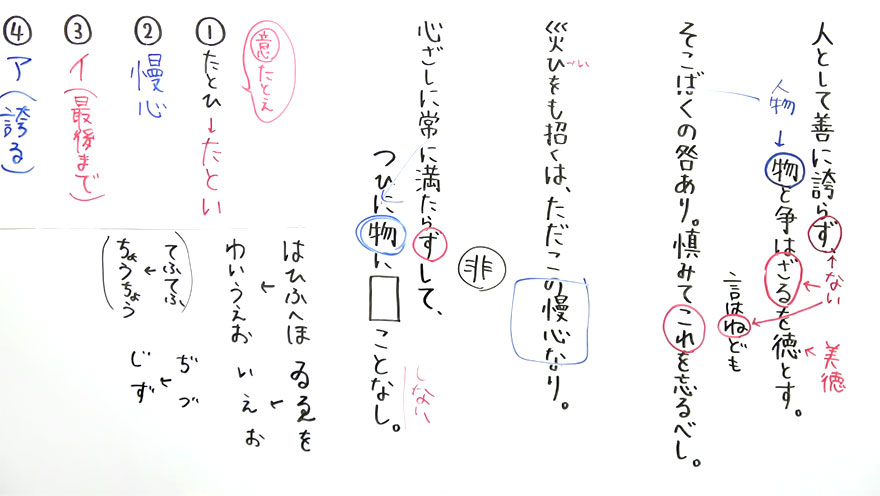 人として善に誇らず
ない
人物
↓
物と争はざるを徳とす。
美徳
言はねども
そこばくの咎あり。慎みてこれを忘るべし。
災ひをも招くは、ただこの慢心なり。
い
非
心ざしに常に満たらずして、
つひに物に□ことなし。
しない
意たとえ
①たとひ→たとい
②慢心
③イ(最後まで)
④ア(誇る)
はひふへほ
わいうえお
ゐゑを
いえお
てふてふ
ちょうちょう
ぢづ
じず